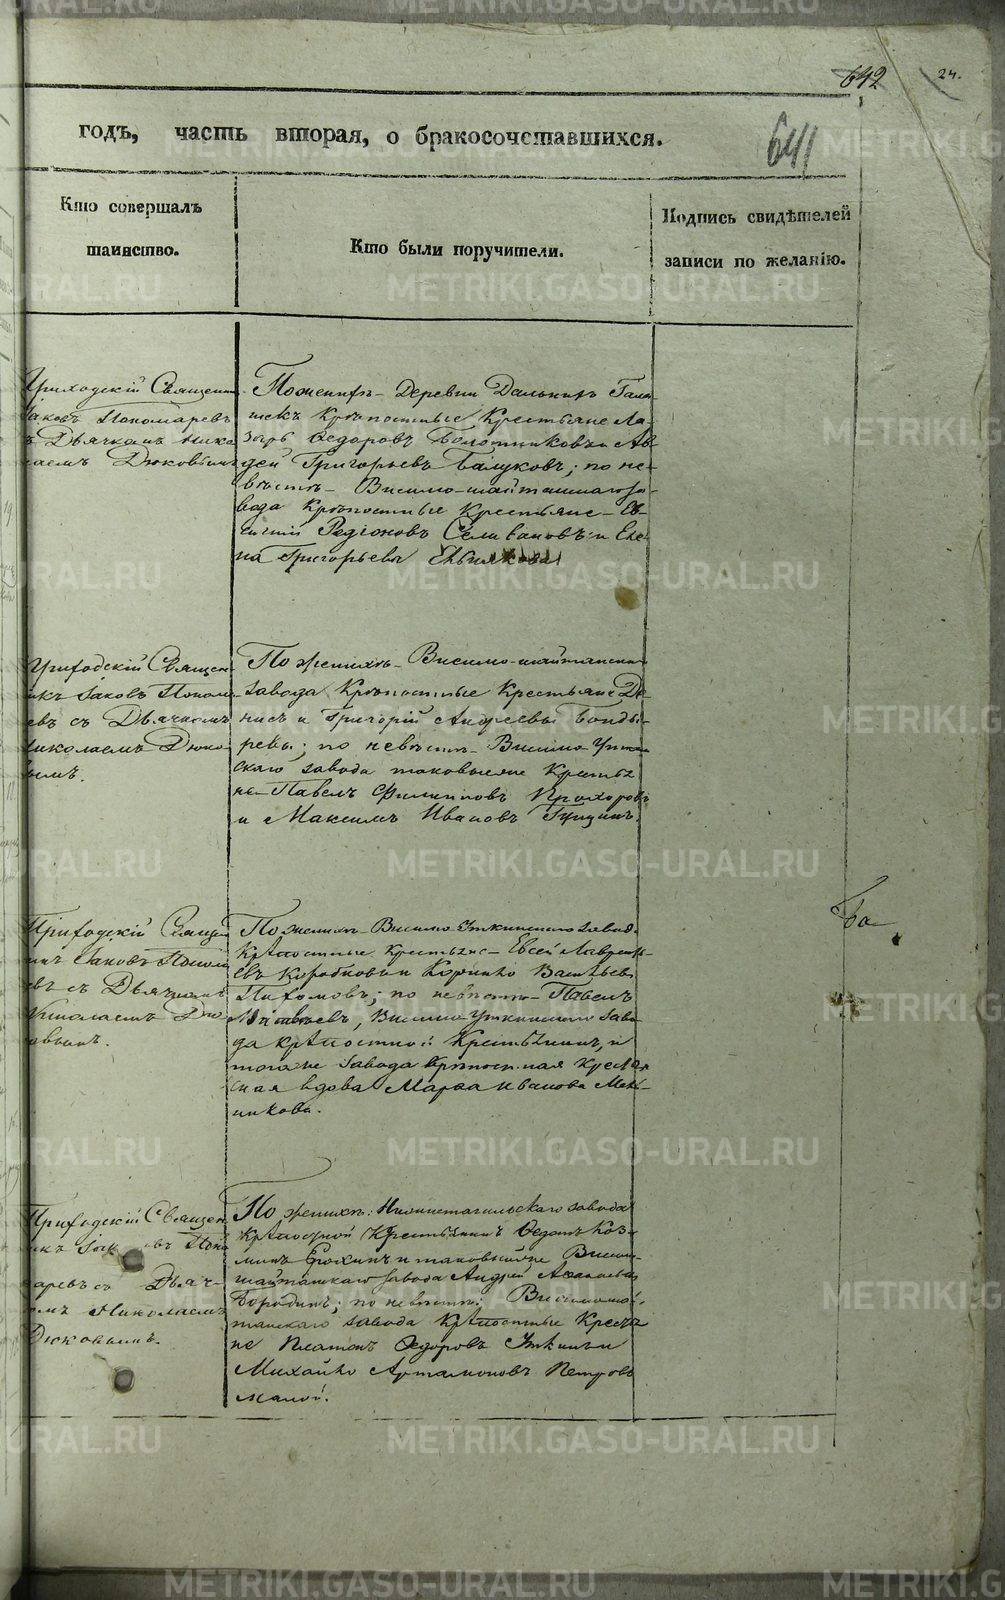 642 24.
годъ, часть вторая, о бракосочетавшихся.
641
Кто совершалъ
таинство.
Кто были поручители.
Подпись свидѣтелей
записи по желанію.
Приходскій Священни
Іаковъ Пономаревъ
съ Дьячкомъ Нико
лаемъ Дюковымъ
По женихѣ Деревни Дальнихъ
крѣпостные Крестьяне Ла-
зарь Ѳедоровъ Болотниковъ и Ав-
дей Григорьевъ Балуковъ; по не-
вѣстѣ Висимо-шайтанскаго за-
вода Крѣпостные Крестьяне Ев-
Родіоновъ Селивановъ и Еле-
на Григорьева
Приходскій Священ-
икъ Іаковъ Поном
евъ съ Дьячкомъ
Николаемъ Дюко
вымъ.
По женихѣ Висимо-шайтанскаго
завода Крѣпостные Крестьяне Де-
нисъ и Григорій Андреевы Бонды-
ревы; по невѣстѣ Висимо Уткин
скаго завода таковые же Крестья
не Павелъ Филипповъ Прохоровъ
и Максимъ Ивановъ Гущинъ.
Приходскій Священ
икъ Іаковъ Поном
евъ съ Дьячкомъ
Николаемъ Дю
ковымъ.
По женихѣ Висимо-Уткинскаго завода
крѣпостные крестьяне Евсей Лаврентъ-
евъ Коробковъ и Корнило Васильевъ
Пахомовъ; по невѣстѣ Павелъ
Матвѣевъ, Висимо Уткинскаго заво-
да крѣпостной Крестьянинъ, и
того же завода крѣпостная крестьян
ская вдова Марѳа Иванова Мель-
никова.
Приходскій Священ
икъ Іаковъ Пона
маревъ съ Дьяч-
комъ Николаемъ
Дюковымъ.
По женихѣ: Нижнетагильскаго завода
крѣпостной Крестьянинъ Ѳедотъ Коз-
минъ Ерохинъ и таковый же Висимо
шайтанскаго завода Андрей Аѳанасьевъ
Бородинъ; по невѣстѣ: Висимошай-
танскаго завода крѣпостные Крестья
не Платонъ Ѳедоровъ Уткинъ и
Михайло Артамоновъ Петровъ
малой.
METRIKI.GASO-URAL.RU